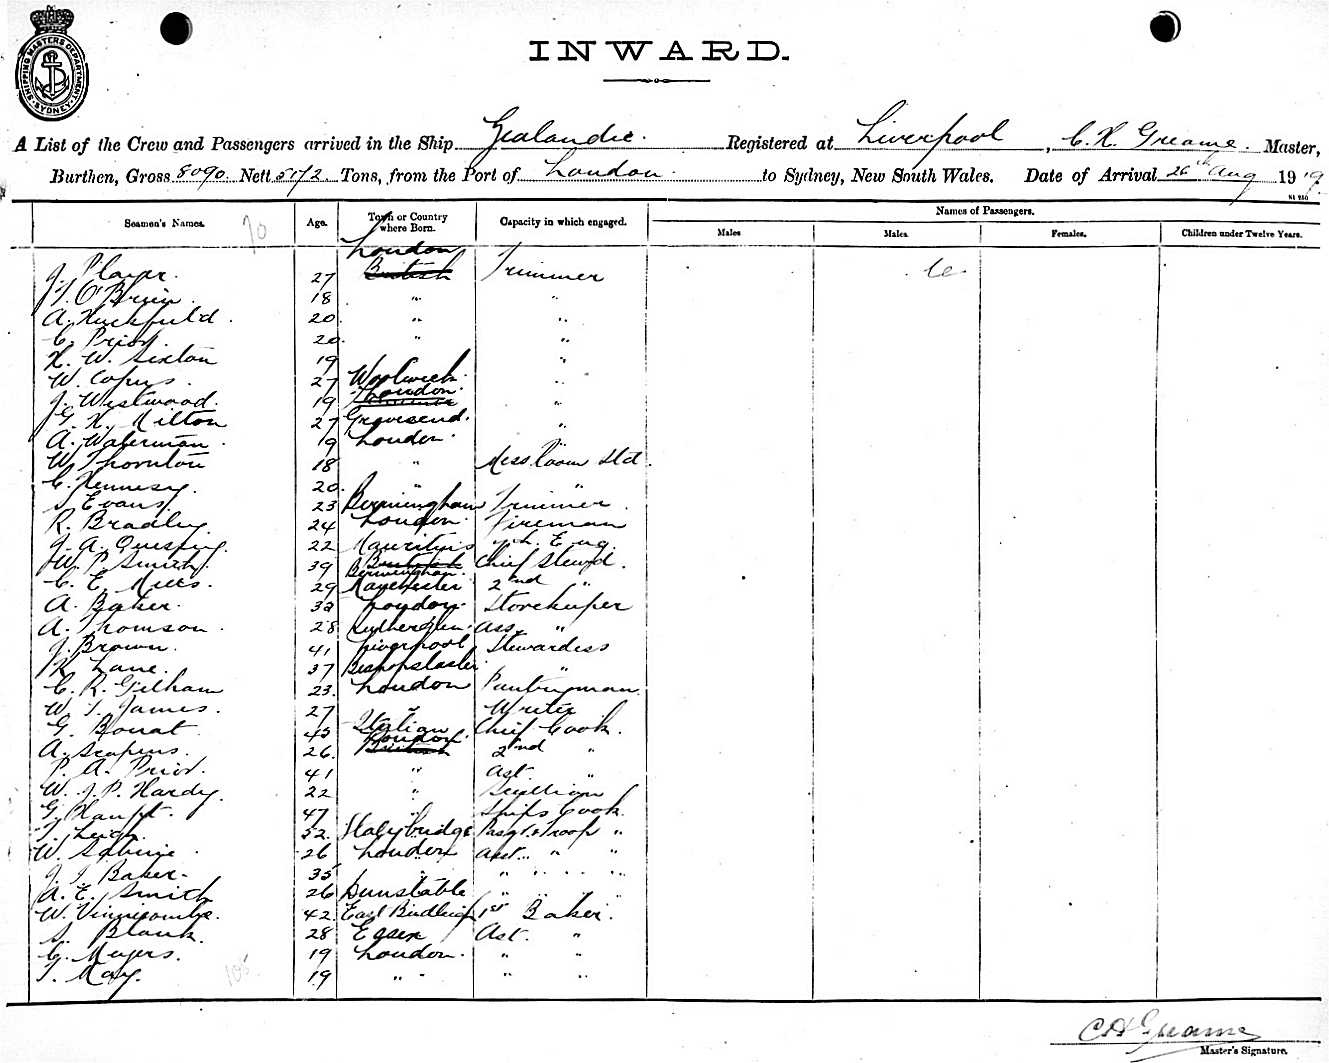 SHIPPING MASTERS DEPARTMENT
SYDNEY
INWARD.
A List of the Crew and Passengers arrived in the Ship Zealandic. Registered at Liverpool, C. H. Greame. Master,
Burthen, Gross 8090. Nett 5172 Tons, from the Port of London. to Sydney, New South Wales. Date of Arrival 26th Aug 1919.
Seamen's Names. 70 Age. Town or Country where Born. Capacity in which engaged. Names of Passengers.
Males Males. Females. Children under Twelve Years.
London
J. 27 British Trimmer
J. O'Brien. 18 " "
A. Huckfield. 20. " "
C. Prior. 20. " "
H. W. Sexton 19 "
W. Copus. 27 Woolwich. "
J. Westwood. 19 London. "
G. H. Milton 27 Gravesend. "
A. Waterman. 19 London. "
W. Thornton 18 " Mess Room Std.
C. Hennesy. 20. " "
Evans. 23 Birmingham Trimmer.
R. Bradley. 24 London. Fireman
J. A. 22 Mauritius Eng.
W. P. Smith. 39 British Birmingham. Chief Stew'd.
C. E. Mills. 29 Manchester 2nd "
A. Baker. 32 London. Storekeeper
A. Thomson. 28 Rutherglen. Ass. "
J. Brown. 41 Liverpool Stewardess
K. Lane. 37 "
C. R. Gilham 23. London Pantryman
W. J. James. 27 " Writer
G. Bonat. 45 Italian. Chief Cook.
A. Scopus. 26. London British 2nd "
P. A. Prior. 41 " Ast. "
W. J. P. Hardy. 22 " Scullion
G. Haupt. 47 " Ships Cook.
Leigh. 52. Stalybridge "
W. Sabine. 26 London Asst. " "
J. J. Baker. 35 " " "
A. E. Smith 26 Dunstable " " "
W. Vinnicombe. 42. East Budleigh 1st Baker.
S. Blank. 28 Essex Ast. "
C. Meyers. 19 London. " "
T. May. 19 " " "
105
C H Greame
Master's Signature.